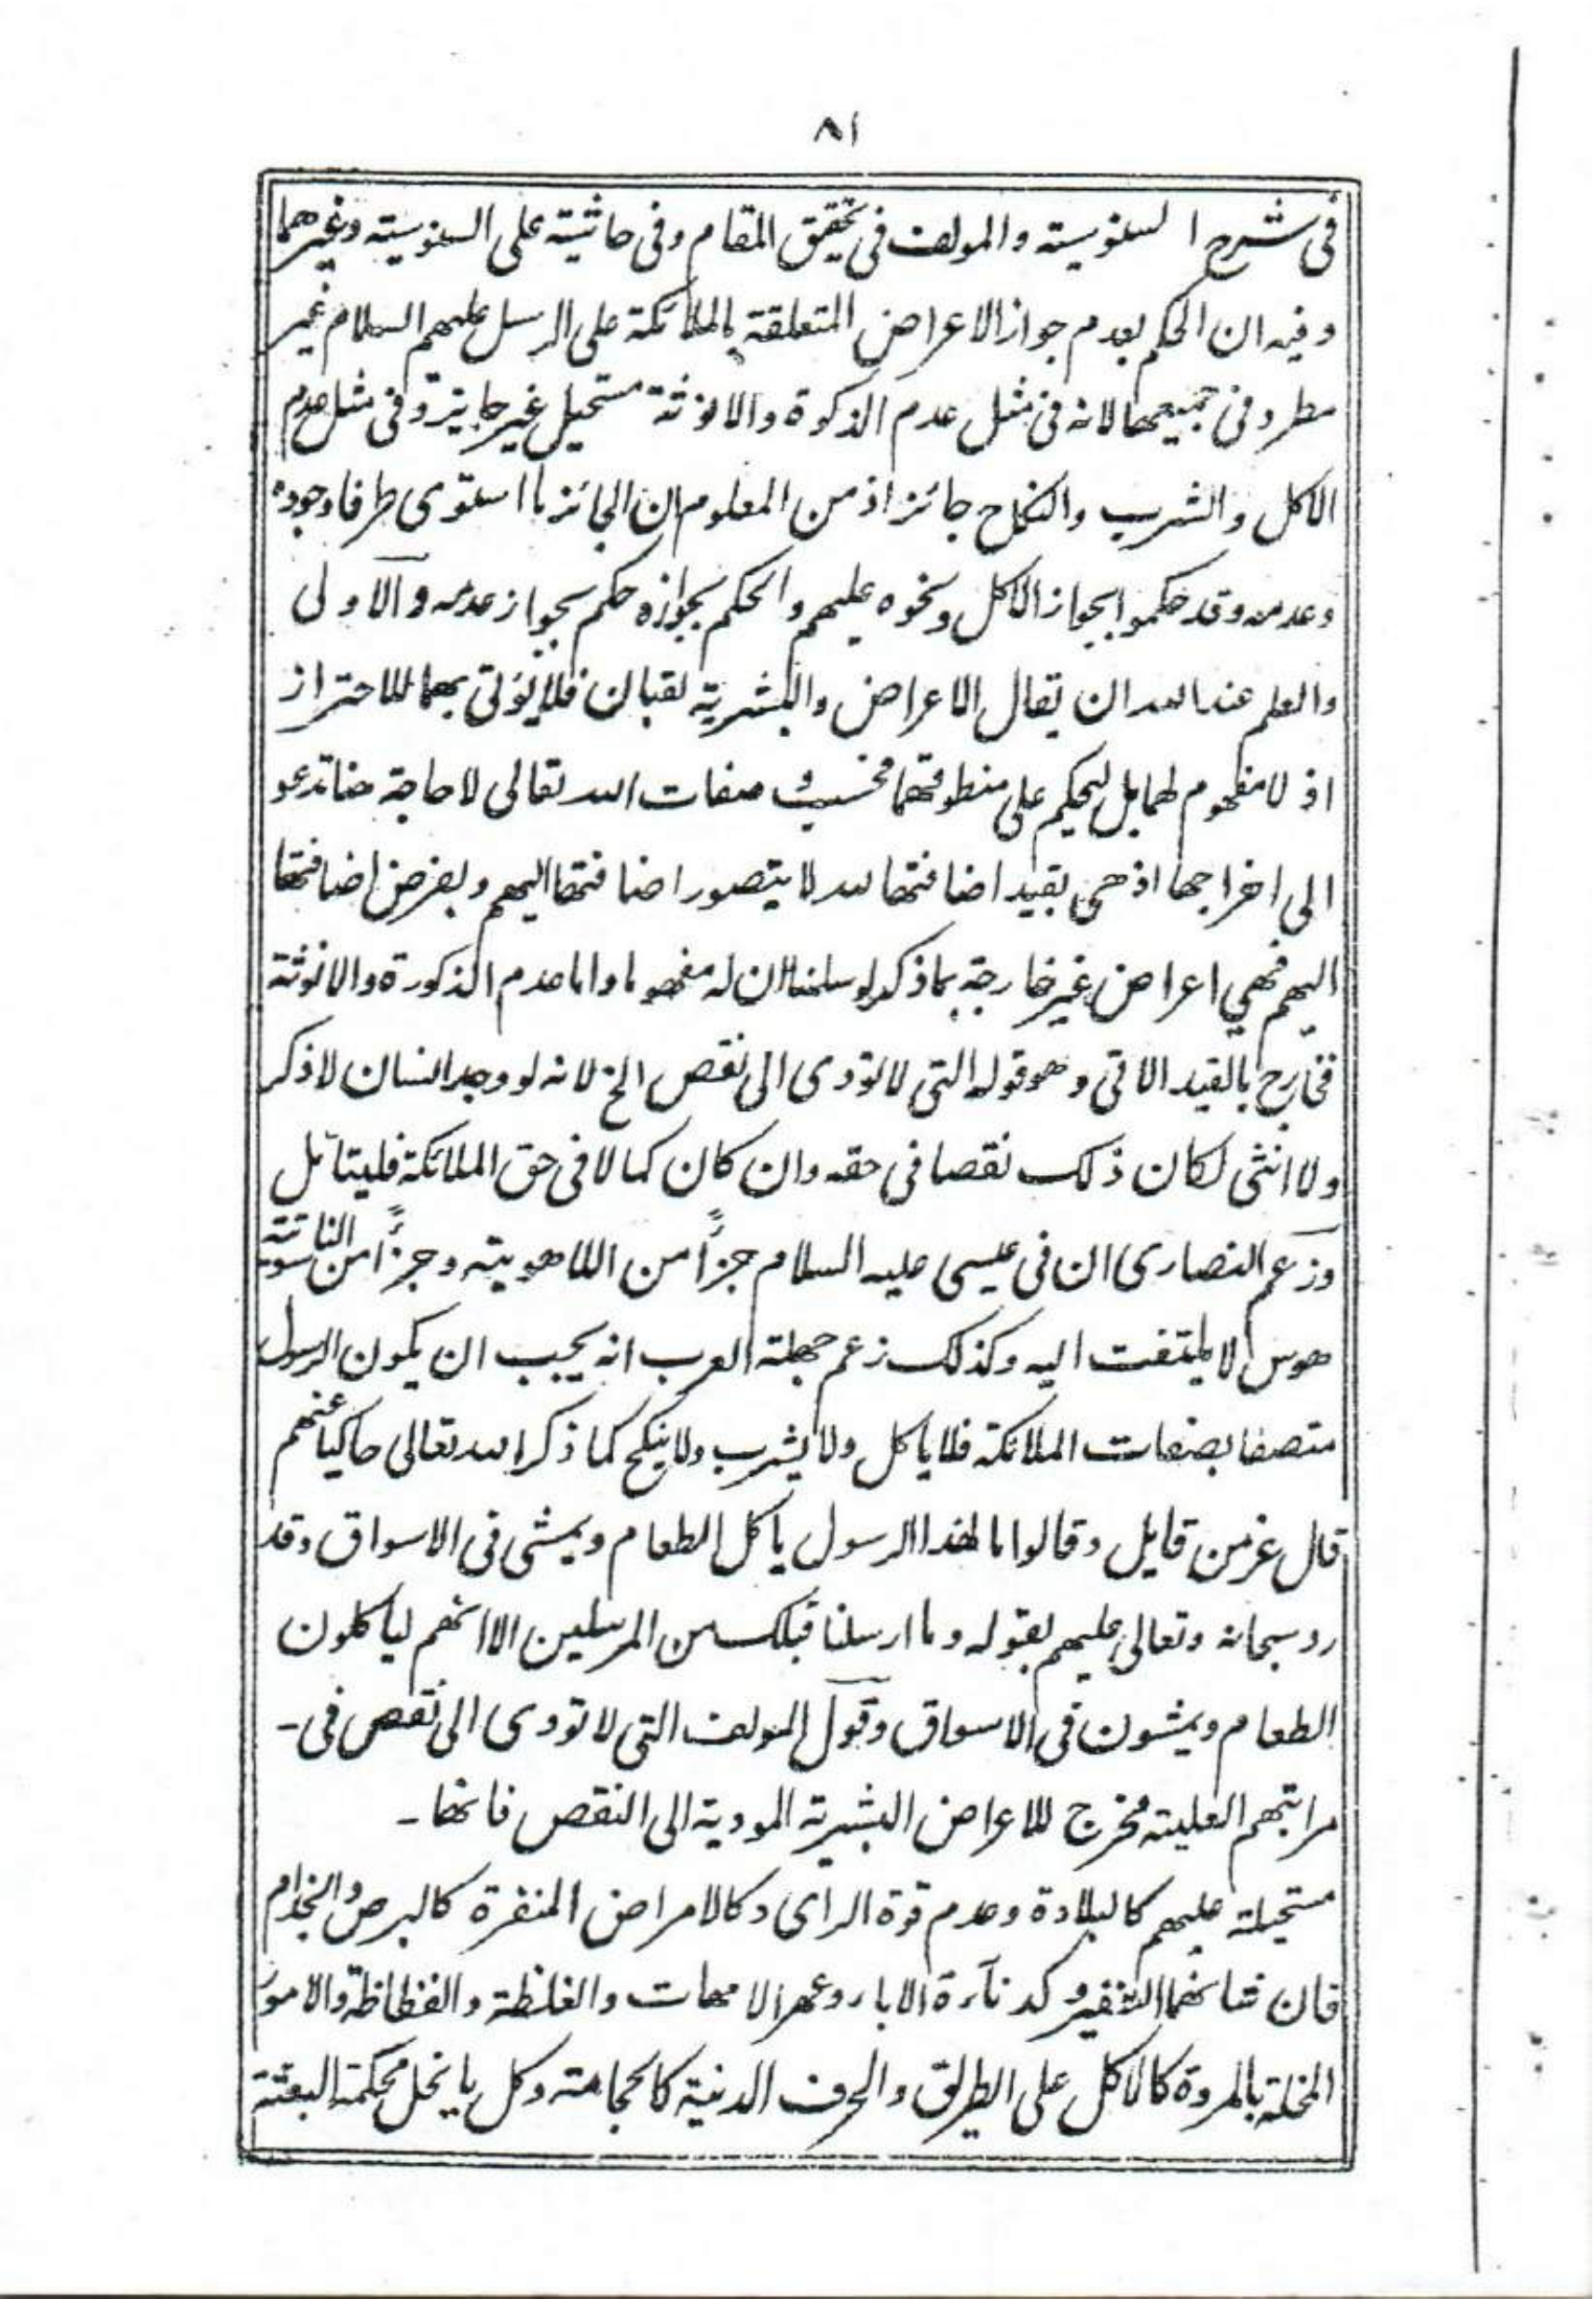 ٨١
فى شرح السنوسيته والمولف فى تحقيق المقام وفى حاشيته على السنوسيته وغيرهما
وفيه ان الحكم بعدم جواز الاعراض المتعلقة بالملائكة على الرسل عليهم السلام غير
مطرد فى جميعها لانه فى مثل عدم الذكورة والانوثة مستحيل غير جايز وفى مثل عدم
الاكل والشرب والنكاح جائز اذ من المعلوم ان الجائز ما استوى طرفا وجوده
وعدمه وقد حكموا بجواز الاكل ونحوه عليهم والحكم بجوازه حكم بجواز عدمه والاولى
والعلم عند الله ان يقال الاعراض والبشرية لقبان فلا يؤتى بهما للاحتراز
اذ لا مفهوم لهما بل ليحكم على منطوقهما فحسب و صفات الله تعالى لا حاجة هنا تدعو
الى اخراجها اذ هى بقيد اضافتها لله لا يتصور اضافتها اليهم وبفرض اضافتها
اليهم فهي اعراض غير خارجة بما ذكر لو سلمنا ان له مفهوما واما عدم الذكورة والانوثة
فخارج بالقيد الاتى وهو قوله التى لا تؤدى الى نقص الخ لانه لو وجد انسان لا ذكر
ولا انثى لكان ذلك نقصا فى حقه وان كان كمالا فى حق الملائكة فليتامل
وزعم النصارى ان فى عيسى عليه السلام جزأ من اللاهويته وجزأ من الناسوتته
هوس لا يلتفت اليه وكذلك زعم جهلة العرب انه يجب ان يكون الرسول
متصفا بصفات الملائكة فلا ياكل ولا يشرب ولا ينكح كما ذكر الله تعالى حاكيا عنهم
قال عز من قايل وقالوا ما لهذا الرسول ياكل الطعام ويمشى فى الاسواق وقد
رد سبحانه وتعالى عليهم بقوله وما ارسلنا قبلك من المرسلين الا انهم لياكلون
الطعام ويمشون فى الاسواق وقول المولف التى لا تودى الى نقص فى -
مراتبهم العليته مخرج للاعراض البشرية المودية الى النقص فانها -
مستحيلة عليهم كالبلادة وعدم قوة الراى وكالامراض المنفرة كالبرص والجذام
فان شانهما التنفير و كدناءة الابار وعهر الامهات والغلظة والفظاظة والامور
المخلة بالمروة كالاكل على الطريق والحرف الدنية كالحجامته وكل ما يخل بحكمة البعثة